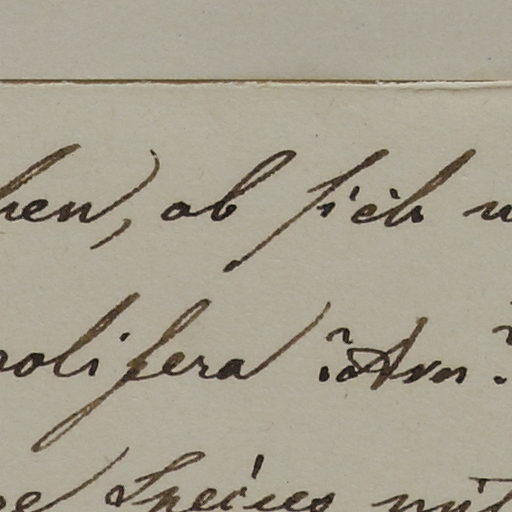 hen, ob sich
rolifera ? Arn ?
Species mit